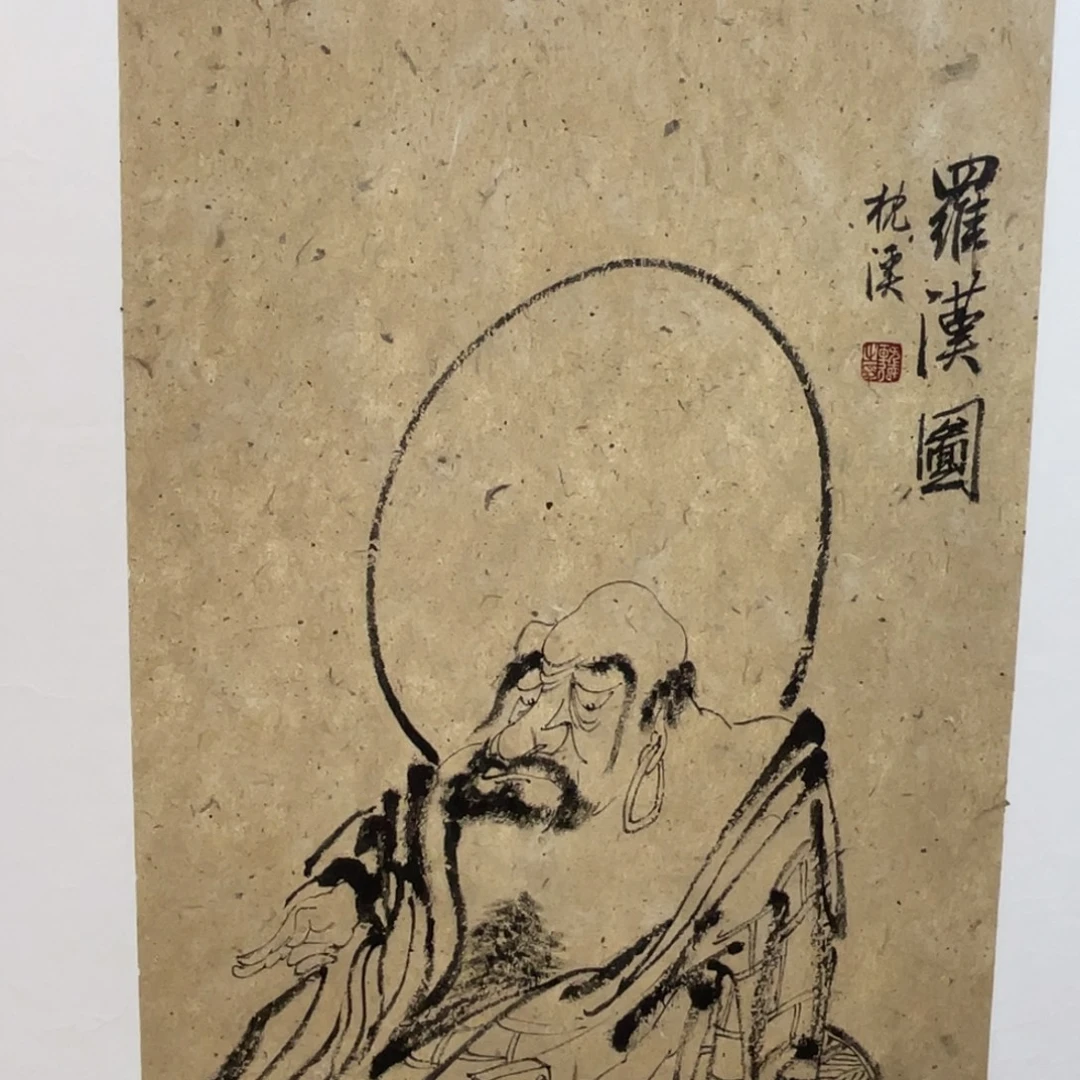 羅漢圖
枕溪